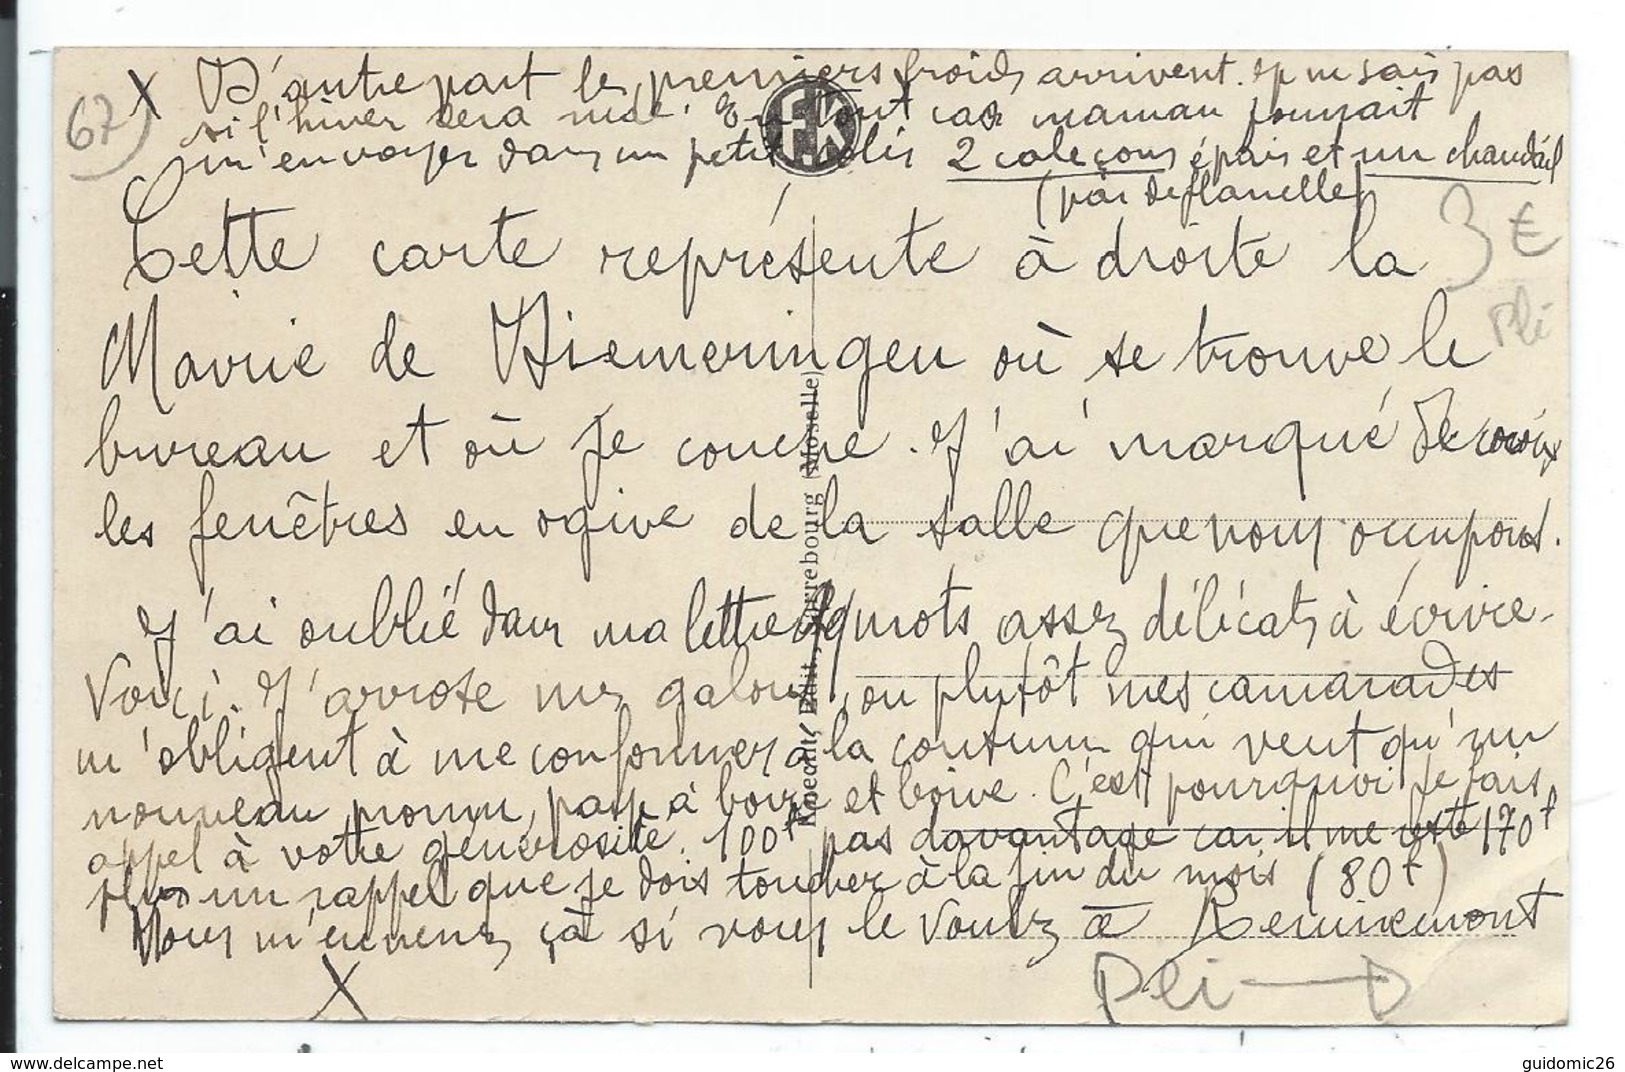 67)
X D'autre part les premiers froids arrivent. Je ne sais pas
si l'hiver sera rude. En tout cas maman pourrait
m'envoyer dans un petit colis 2 caleçons épais et un chandail
(pas de flanelle)
FK
3 €
Pli
Cette carte représente à droite la
Mairie de Diemeringen où se trouve le
bureau et où je couche. J'ai marqué de croix
les fenêtres en ogive de la salle que nous occupons.
J'ai oublié dans ma lettre qq mots assez délicats à écrire.
Voici. J'arrose mes galons, ou plutôt mes camarades
m'obligent à me conformer à la coutume qui veut qu'un
nouveau promu, paye à boire et boive. C'est pourquoi je fais
appel à votre générosité. 100f pas davantage car il me reste 170f
plus un rappel que je dois toucher à la fin du mois (80f)
Vous m'enverrez çà si vous le voulez à Remiremont
X
Pli
(Moselle)
delcampe.net
guidomic26